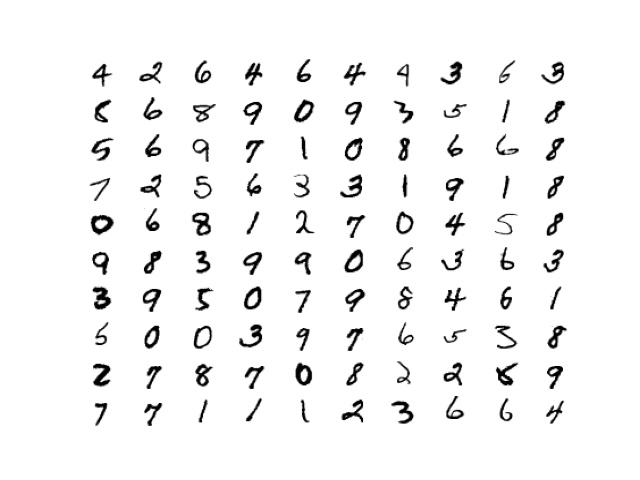 4 2 6 4 6 4 9 3 6 3
8 6 8 9 0 9 3 5 1 8
5 6 9 7 1 0 8 6 6 8
7 2 5 6 3 3 1 9 1 8
0 6 8 1 2 7 0 4 5 8
9 8 3 9 9 0 6 3 6 3
3 9 5 0 7 9 8 4 6 1
5 0 0 3 9 7 6 5 3 8
2 7 8 7 0 8 2 2 8 9
7 7 1 1 1 2 3 6 6 4